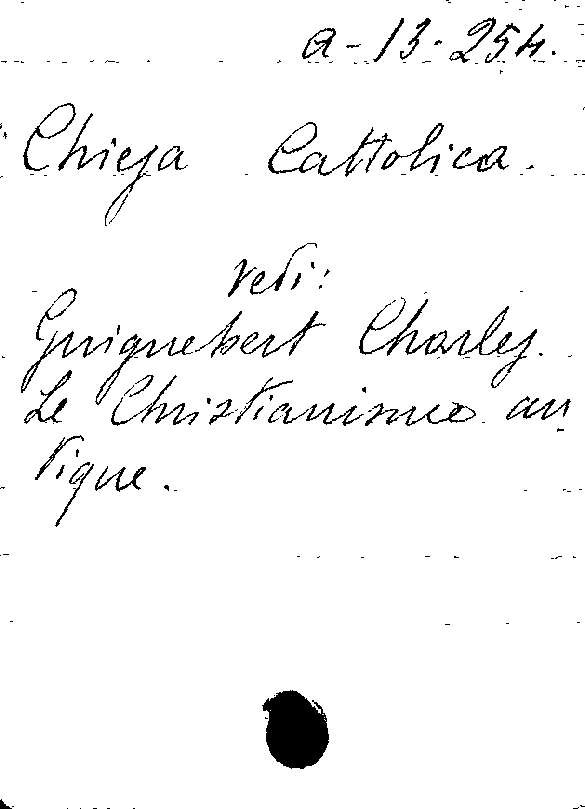 a-13-254.
Chiesa Cattolica.
vedi:
Guignebert Charles.
Le Christianisme an
tique.